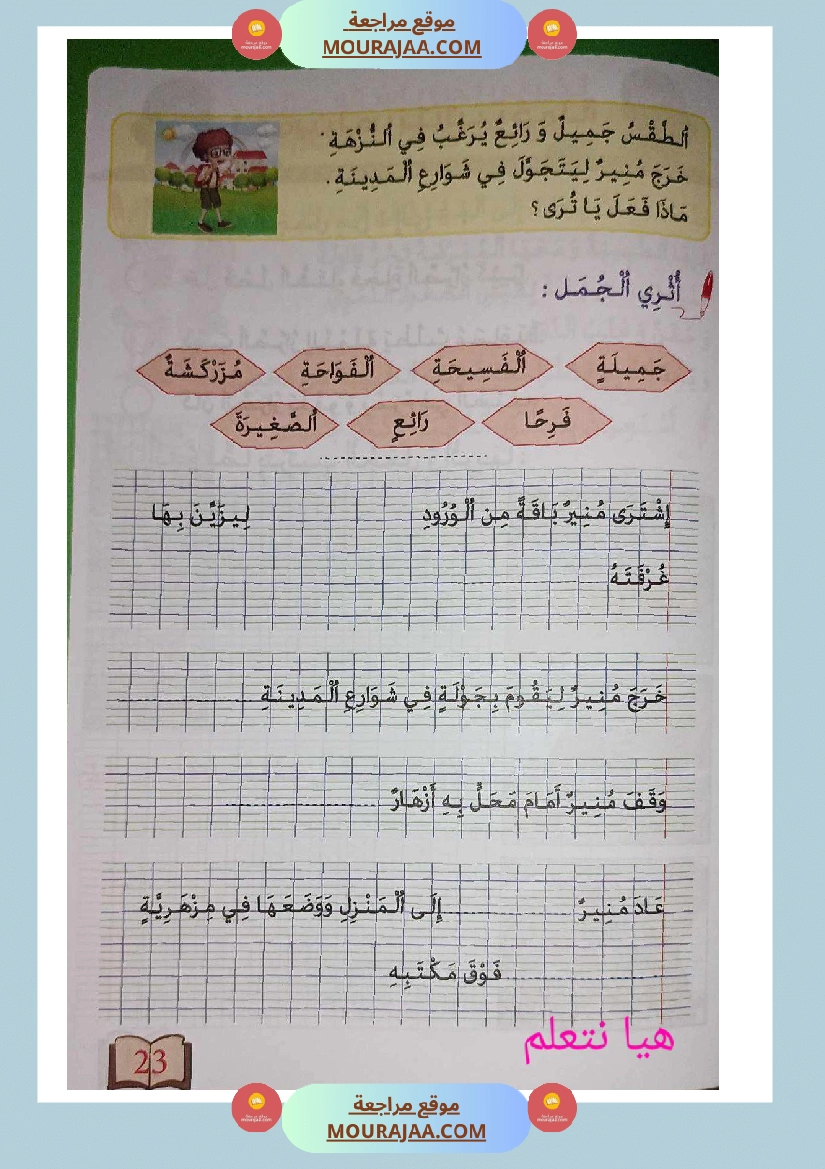 موقع مراجعة
MOURAJAA.COM
اَلطَّقْسُ جَمِيلٌ وَ رَائِعٌ يُرَغِّبُ فِي اَلنُّزْهَةِ.
خَرَجَ مُنِيرٌ لِيَتَجَوَّلَ فِي شَوَارِعِ اَلْمَدِينَةِ.
مَاذَا فَعَلَ يَا تُرَى؟
أُثْرِي اَلْجُمَل :
جَمِيلَةٍ اَلْفَسِيحَةِ اَلْفَوَاحَةِ مُزَرْكَشَةٌ
فَرِحًا رَائِعٍ اَلصَّغِيرَةَ
إِشْتَرَى مُنِيرٌ بَاقَةً مِن اَلْوُرُودِ لِيزَيِّنَ بِهَا
غُرْفَتَهُ
خَرَجَ مُنِيرٌ لِيَقُومَ بِجَوْلَةٍ فِي شَوَارِعِ اَلْمَدِينَةِ
وَقَفَ مُنِيرٌ أَمَامَ مَحَلٍّ بِهِ أَزْهَارٌ
عَادَ مُنِيرٌ إِلَى اَلْمَنْزِلِ وَوَضَعَهَا فِي مِزْهَرِيَّةٍ
فَوْقَ مَكْتَبِهِ
هيا نتعلم
23
موقع مراجعة
MOURAJAA.COM